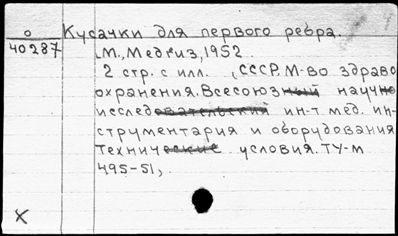 О Кусачки для первого ребра.
40287 М., Медгиз, 1952.
2 стр. с илл. (СССР. М-во здраво
охранения. Всесоюзный научно
исследовательский ин-т мед. ин-
струментария и оборудования
Технические условия. ТУ-М
495-51),
X